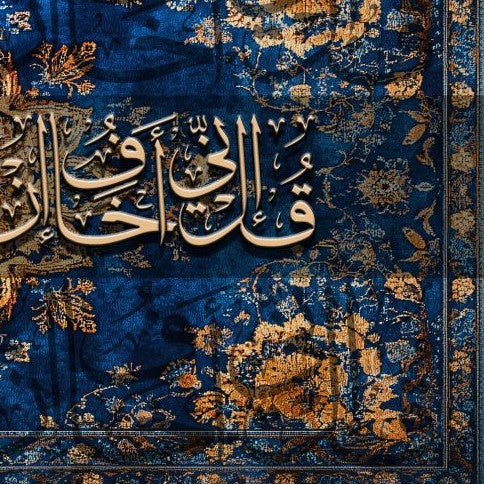 قُلْ إِنِّي أَخَافُ إِنْ